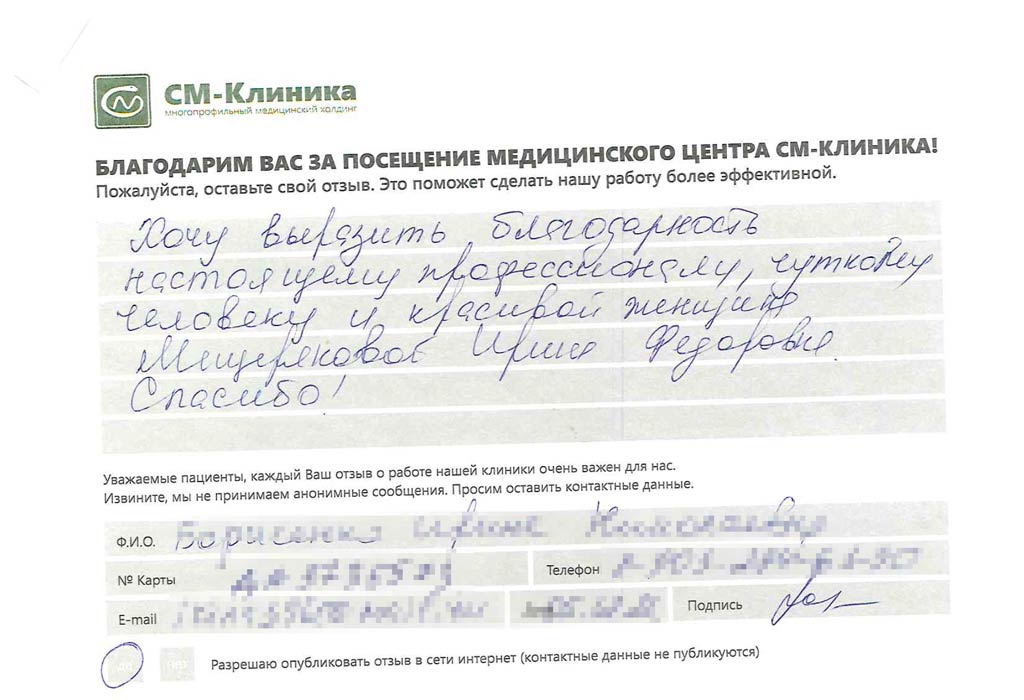 СМ-Клиника
многопрофильный медицинский холдинг
БЛАГОДАРИМ ВАС ЗА ПОСЕЩЕНИЕ МЕДИЦИНСКОГО ЦЕНТРА СМ-КЛИНИКА!
Пожалуйста, оставьте свой отзыв. Это поможет сделать нашу работу более эффективной.
Хочу выразить благодарность
настоящему профессионалу, чуткому
человеку и красивой женщине
Мещеряковой Ирине Федоровне.
Спасибо!
Уважаемые пациенты, каждый Ваш отзыв о работе нашей клиники очень важен для нас.
Извините, мы не принимаем анонимные сообщения. Просим оставить контактные данные.
Ф.И.О.
№ Карты
Телефон
E-mail
Подпись
да нет Разрешаю опубликовать отзыв в сети интернет (контактные данные не публикуются)